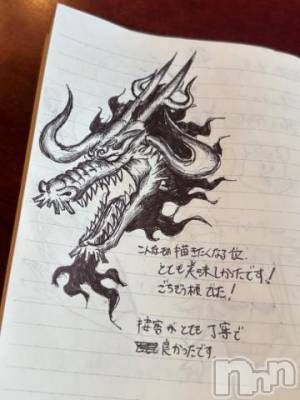 こんなの描きたくなる位、
とても美味しかったです！
ごちそう様でした！
接客がとても丁寧で
良かったです。